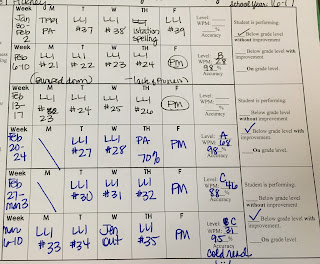 School Year
Week M T W TH F
Jan 30- Feb 2 PA LLI #37 LLI #38 station spelling LLI #39 Level: WPM: % Accuracy
Student is performing:
Below grade level without improvement.
Below grade level with improvement.
On grade level.
Week M T W TH F
6-10 LLI #21 LLI #22 LLI #23 LLI #24 PM Level: B WPM: 28 98% Accuracy
Student is performing:
Below grade level without improvement.
Below grade level with improvement.
On grade level.
Week M T W TH F
Feb 13-17 LLI #22 23 LLI #24 LLI #25 LLI #26 PM Level: WPM: % Accuracy
Student is performing:
Below grade level without improvement.
Below grade level with improvement.
On grade level.
Week M T W TH F
Feb 20-24 LLI #27 LLI #28 PA 70% PM Level: A WPM: 68 98% Accuracy
Student is performing:
Below grade level without improvement.
Below grade level with improvement.
On grade level.
Week M T W TH F
Feb 27- mar 3 LLI #30 LLI #31 LLI #32 PM Level: C WPM: 46 88% Accuracy
Student is performing:
Below grade level without improvement.
Below grade level with improvement.
On grade level.
Week M T W TH F
mar 6-10 LLI #33 LLI #34 Jen out LLI #35 PM Level: C WPM: 31 95% Accuracy
Student is performing:
Below grade level without improvement.
Below grade level with improvement.
On grade level.
cold read